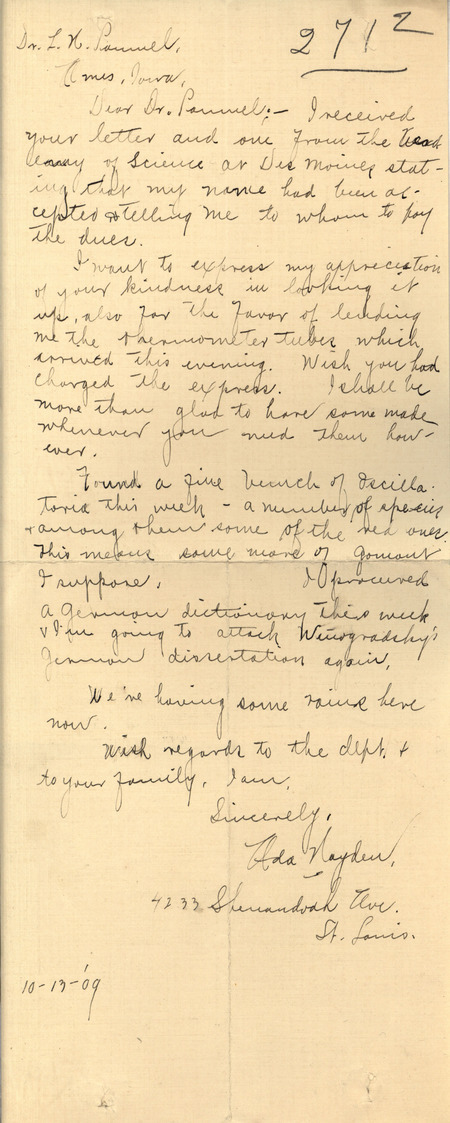 2712
Dr. L. H. Pammel,
Ames, Iowa,
Dear Dr. Pammel:— I received
your letter and one from the Acad-
emy of Science at Des Moines stat-
ing that my name had been ac-
cepted & telling me to whom to pay
the dues.
I want to express my appreciation
of your kindness in looking it
up, also for the favor of lending
me the thermometer tubes which
arrived this evening. Wish you had
charged the express. I shall be
more than glad to have some made
whenever you need them how-
ever.
Found a fine bunch of Oscilla-
toria this week - a number of species
& among them some of the red ones.
This means some more of Gomont
I suppose. I procured
a German dictionary this week
& I'm going to attack Winogradsky's
German dissertation again.
We're having some rains here
now.
With regards to the dept. &
to your family, I am,
Sincerely,
Ada Hayden,
4233 Shenandoah Ave.
St. Louis.
10-13-'09